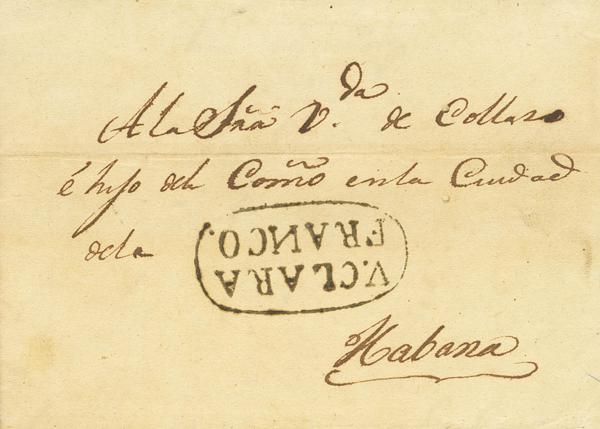 A la Sñã V.da de Collazo
é hijo del Comño en la Ciudad
de la
V. CLARA
FRANCO.
Habana